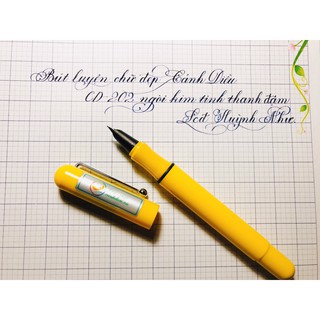 Bút luyện chữ đẹp Cánh Diều
CD-202 ngòi kim tinh thanh đậm
Huỳnh Như.